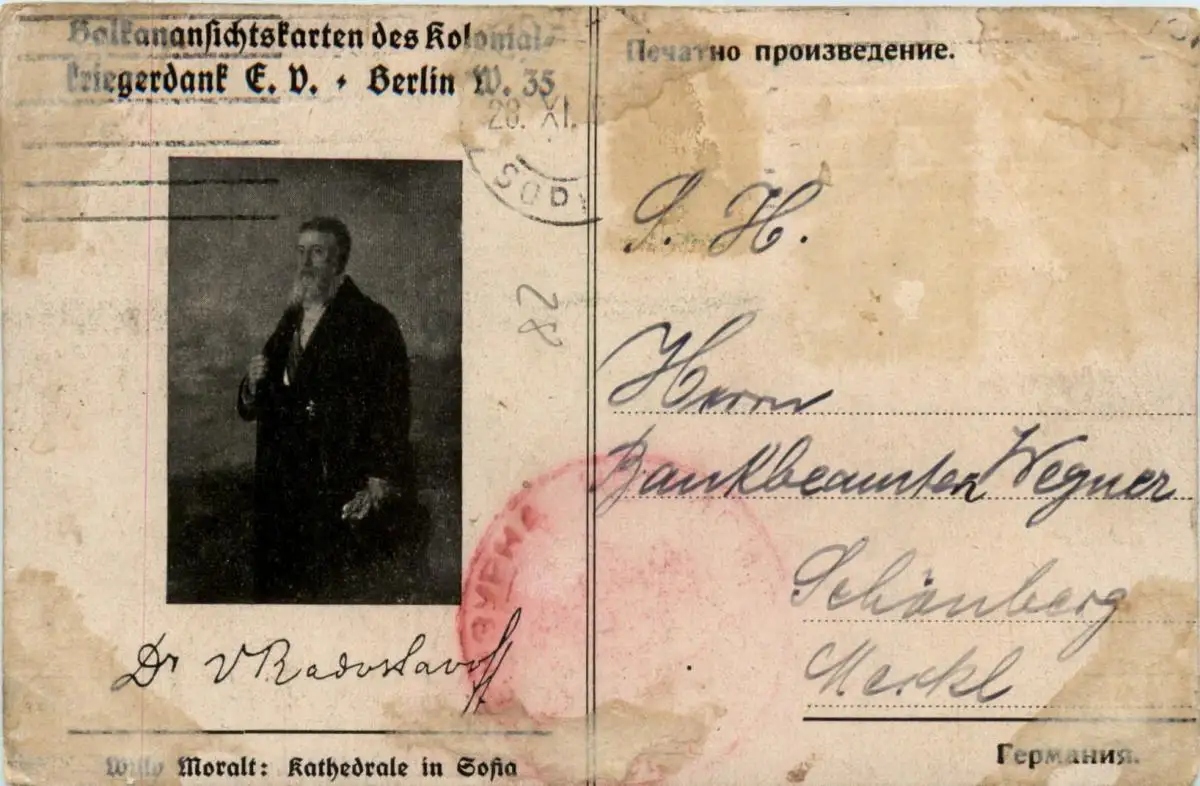 Balkanansichtskarten des Kolonial-
kriegerdank E. V. • Berlin W. 35
28. XI.
28
Dr V Radoslavoff
Willy Moralt: Kathedrale in Sofia
Печатно произведение.
S. H.
Herrn
Bankbeamten Wegner
Schönberg
Meckl
Германия.